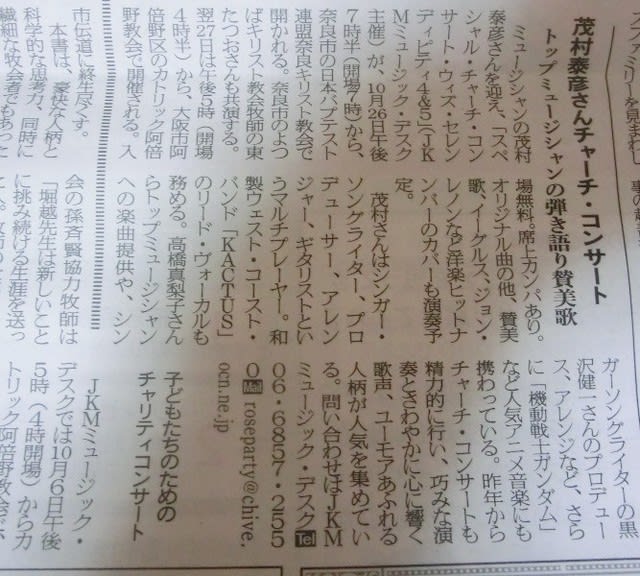 茂村泰彦さんチャーチ・コンサート
トップミュージシャンの弾き語り賛美歌
ミュージシャンの茂村
泰彦さんを迎え、「スペ
シャル・チャーチ・コン
サート・ウィズ・セレン
ディピティ4&5」(JK
Mミュージック・デスク
主催)が、10月26日午後
7時半(開場7時)から、
奈良市の日本バプテスト
連盟奈良キリスト教会で
開かれる。奈良市のよつ
ばキリスト教会牧師の東
たつおさんも共演する。
翌27日は午後5時(開場
4時半)から、大阪市阿
倍野区のカトリック阿倍
野教会で開催される。入
場無料。席上カンパあり。
オリジナル曲の他、賛美
歌、イーグルス、ジョン・
レノンなど洋楽ヒットナ
ンバーのカバーも演奏予
定。
茂村さんはシンガー・
ソングライター、プロ
デューサー、アレン
ジャー、ギタリストとい
うマルチプレーヤー。和
製ウェスト・コースト・
バンド「KACTUS」
のリード・ヴォーカルも
務める。高橋真梨子さん
らトップミュージシャン
への楽曲提供や、シン
ガーソングライターの黒
沢健一さんのプロデュー
ス、アレンジなど、さら
に「機動戦士ガンダム」
など人気アニメ音楽にも
携わっている。昨年から
チャーチ・コンサートも
精力的に行い、巧みな演
奏とさわやかに心に響く
歌声、ユーモアあふれる
人柄が人気を集めてい
る。問い合わせはJKM
ミュージック・デスクTel
06・6857・255
0 Mail roseparty@chive.
ocn.ne.jp
子どもたちのための
チャリティコンサート
JKMミュージック・
デスクでは10月6日午後
5時(4時開場)からカ
トリック阿倍野教会で、
市伝道に終生尽くす。
本書は、豪快な人柄と
科学的な思考力、同時に
繊細な牧会者でもあった
会の孫斉賢協力牧師は
「堀越先生は新しいこと
に挑み続ける生涯を送っ